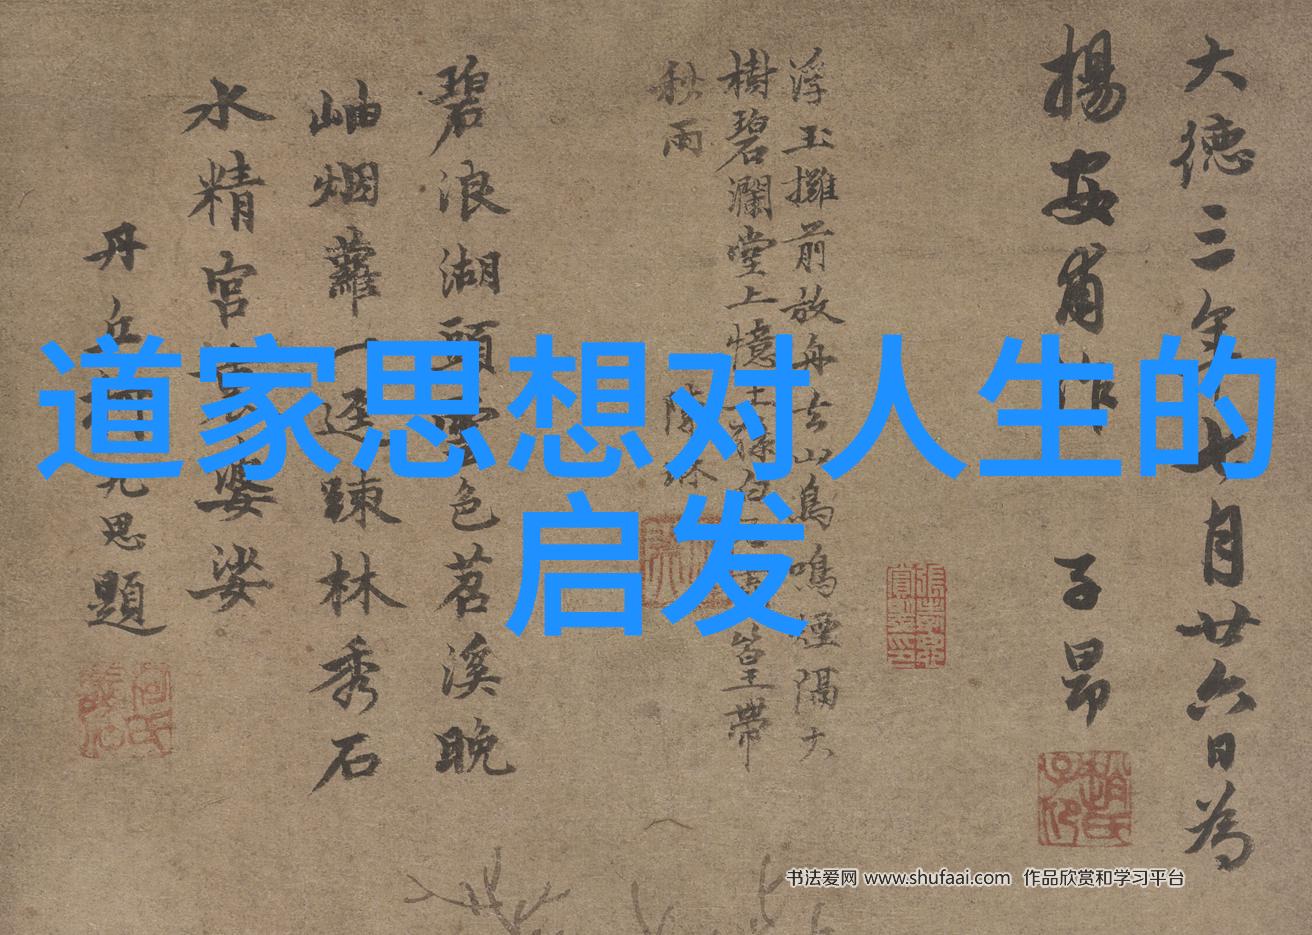 大德三年七月廿六日為
揚安甫作 子昂
浮玉攤前放舟去山鳥鳴煙隔大
樹碧瀾堂上憶王孫白
篁帶
秋雨
碧浪湖頭色苕溪晚
岫烟蘿一逕疎林秀石
水精宮婆娑
丹丘思題
道家思想对人生的
启发
书法爱网 www.shufaai.com 作品欣赏和学习平台